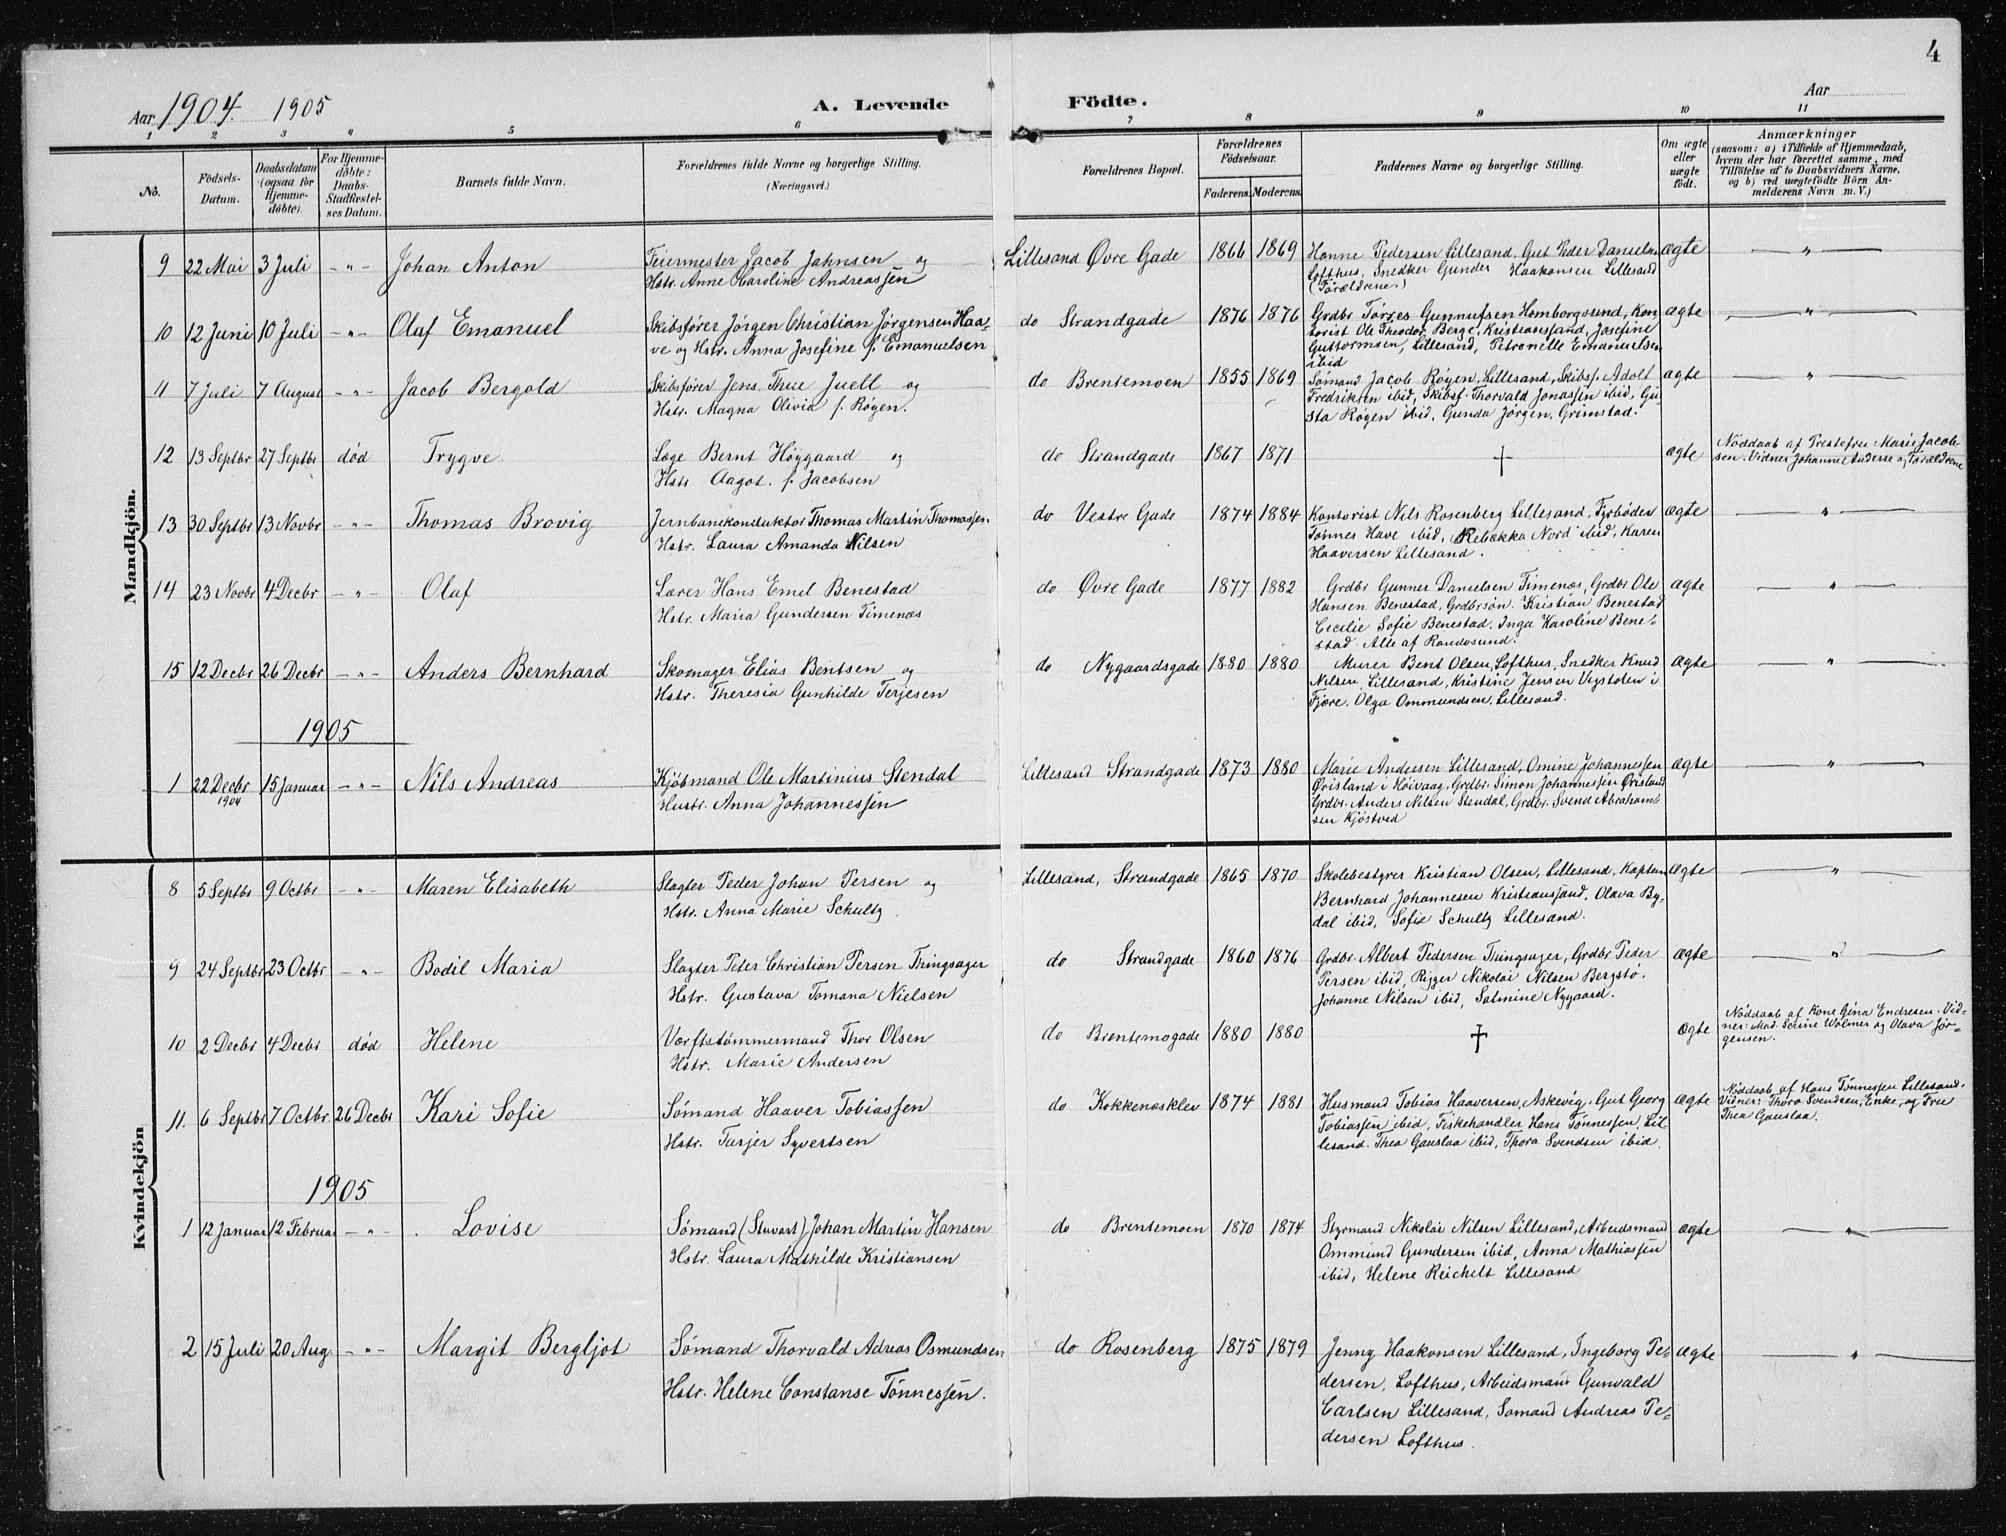 4
Aar 1904. 1905
A. Levende Födte.
Aar
1 2 3 " 5 6 7 8 9 10 11
No.
Födsels-Datum.
Daabsdatum (ogsaa for Hjemmedöbte).
For Hjemmedöbte: Daabs-Stadfæstelses Datum.
Barnets fulde Navn.
Forældrenes fulde Navne og borgerlige Stilling. (Næringsvei.)
Forældrenes Bopæl.
Forældrenes Födselsaar.
Faderens. Moderens.
Faddernes Navne og borgerlige Stilling.
Om ægte eller uægte födt.
Anmærkninger (saasom: a) i Tilfælde af Hjemmedaab, hvem der har forrettet samme, med Tilföielse af to Daabsvidners Navne, og b) ved uægtefödte Börn Anmelderens Navn m. V.)
Mandkjön.
9 22 Mai 3 Juli -"- Johan Anton
Feiermester Jacob Jahnsen og
Hstr. Anne Karoline Andreassen
Lillesand Øvre Gade 1866 1869
Hanne Pedersen Lillesand, Gut Peder Danielsen
Lofthus, Snedker Gunder Haakonsen Lillesand
(Forældrene.)
ægte "
10 12 Juni 10 Juli -"- Olaf Emanuel
Skibsfører Jørgen Christian Jørgensen Haa-
ve og Hstr. Anna Josefine f. Emanuelsen
do Strandgade 1876 1876
Grdbr Torres Gunnufsen Homborgsund, Kon-
torist Ole Theodor Berge, Kristiansand, Josefine
Guttormsen, Lillesand, Petronelle Emanuelsen
ibid
ægte "
11 7 Juli 7 August -"- Jacob Bergold
Skibsfører Jens Thue Juell og
Hstr. Magna Olivia f. Røgen.
do Brentemoen 1855 1869
Sømand Jacob Røgen, Lillesand, Skibsf. Adolf
Fredriksen ibid, Skibsf. Thorvald Jonassen ibid, Gu-
sta Røgen ibid, Gunda Jørgen, Grimstad.
ægte "
12 13 Septbr 27 Septbr død Trygve.
Læge Bernt Høygaard og
Hstr Aagot. f. Jacobsen
do Strandgade 1867 1871
†
ægte
Nøddaab af Prestefru Marie Jacob-
sen. Vidner Johanne Anderse og Forældrene
13 30 Septbr 13 Novbr -"- Thomas Brovig
Jernbanekonduktør Thomas Martin Thomassen.
Hstr. Laura Amanda Nilsen
do Vestre Gade 1874 1884
Kontorist Nils Rosenberg Lillesand, Fyrbøder
Tønnes Have ibid, Rebekka Nord ibid, Karen
Haaversen Lillesand.
ægte "
14 23 Novbr 4 Decbr -"- Olaf
Lærer Hans Emel Benestad
Hstr. Maria Gundersen Timenæs
do Øvre Gade 1877 1882
Grdbr Gunner Danielsen Timenæs, Grdbr Ole
Hansen Benestad, Grdbrsøn. Kristian Benestad
Cecilie Sofie Benestad. Inga Karoline Bene-
stad. Alle af Randøsund.
ægte "
15 12 Decbr 26 Decbr -"- Anders Bernhard
Skomager Elias Bentsen og
Hstr. Theresia Gunhilde Terjesen
do Nygaardsgade 1880 1880
Murer Bent Olsen, Lofthus, Snedker Knud
Nilsen, Lillesand, Kristine Jensen Vigstolen i
Fjære. Olga Ommundsen. Lillesand.
ægte "
1905
1 22 Decbr 1904 15 Januar -"- Nils Andreas
Kjøbmand Ole Martinius Stendal
Hustr. Anna Johannessen
Lillesand Strandgade 1873 1880
Marie Andersen Lillesand, Omine Johannessen
Øvisland i Høivaag, Grdbr. Simon Johannessen Øvisland
Grdbr. Anders Nilsen Stendal, Grdbr. Svend Abraham-
sen Kjøstved
ægte "
Kvindekjön
8 5 Septbr 9 Octbr -"- Maren Elisabeth
Slagter Peder Johan Persen og
Hstr. Anna Marie Schultz.
Lillesand, Strandgade 1865 1870
Skolebestyrer Kristian Olsen, Lillesand, Kaptein
Bernhard Johannesen Kristiansand, Olava By-
dal ibid, Sofie Schultz Lillesand.
ægte "
9 24 Septbr 23 Octbr -"- Bodil Maria
Slagter Peter Christian Persen Thingsager
Hstr. Gustava Tomana Nielsen
do Strandgade 1860 1876
Grdbr. Albert Pedersen Thingsager, Grdbr. Peder
Persen ibid, Rigger Nikolai Nilsen Bergstø.
Johanne Nilsen ibid, Salmine Nygaard.
ægte "
10 2 Decbr 4 Decbr død Helene
Værftstømmermand Thor Olsen
Hstr. Marie Andersen
do Brentemogade 1880 1880
†
ægte
Nøddaab af Kone Gina Endresen. Vid-
ner: Mad. Serine Wolmer og Olava Jør-
gensen.
11. 6 Septbr 7 Octbr. 26 Decbr Kari Sofie
Sømand Haaver Tobiassen
Hstr. Turjer Syvertsen
do Kokkenæsklev 1874 1881
Husmand Tobias Haaversen, Askevig. Gut Georg
Tobiassen ibid, Fiskehandler Hans Tønnessen, Lil-
lesand. Thea Gauslaa ibid, Thora Svendsen ibid.
ægte
Nøddaab af Hans Tønnessen Lillesand.
Vidner: Thora Svendsen, Enke, og Fru
Thea Gauslaa.
1905
1 12 Januar 12 Februar -"- Lovise
Sømand (Stuvart) Johan Martin Hansen
Hstr. Laura Mathilde Kristiansen
do Brentemoen 1870 1874
Styrmand Nikolai Nilsen Lillesand, Arbeidsmand
Ommund Gundersen ibid, Anna Mathiassen
ibid, Helene Reichelt Lillesand
ægte "
2 15 Juli 20 Aug. -"- Margit Bergljot
Sømand Thorvald Adreas Osmundsen
Hstr. Helene Constanse Tønnessen.
do Rosenberg 1875 1879
Jenny Haakonsen Lillesand, Ingeborg Pe-
dersen, Lofthus, Arbeidsmand Gunvald
Carlsen Lillesand, Sømand Andreas Pe-
dersen Lofthus.
ægte "